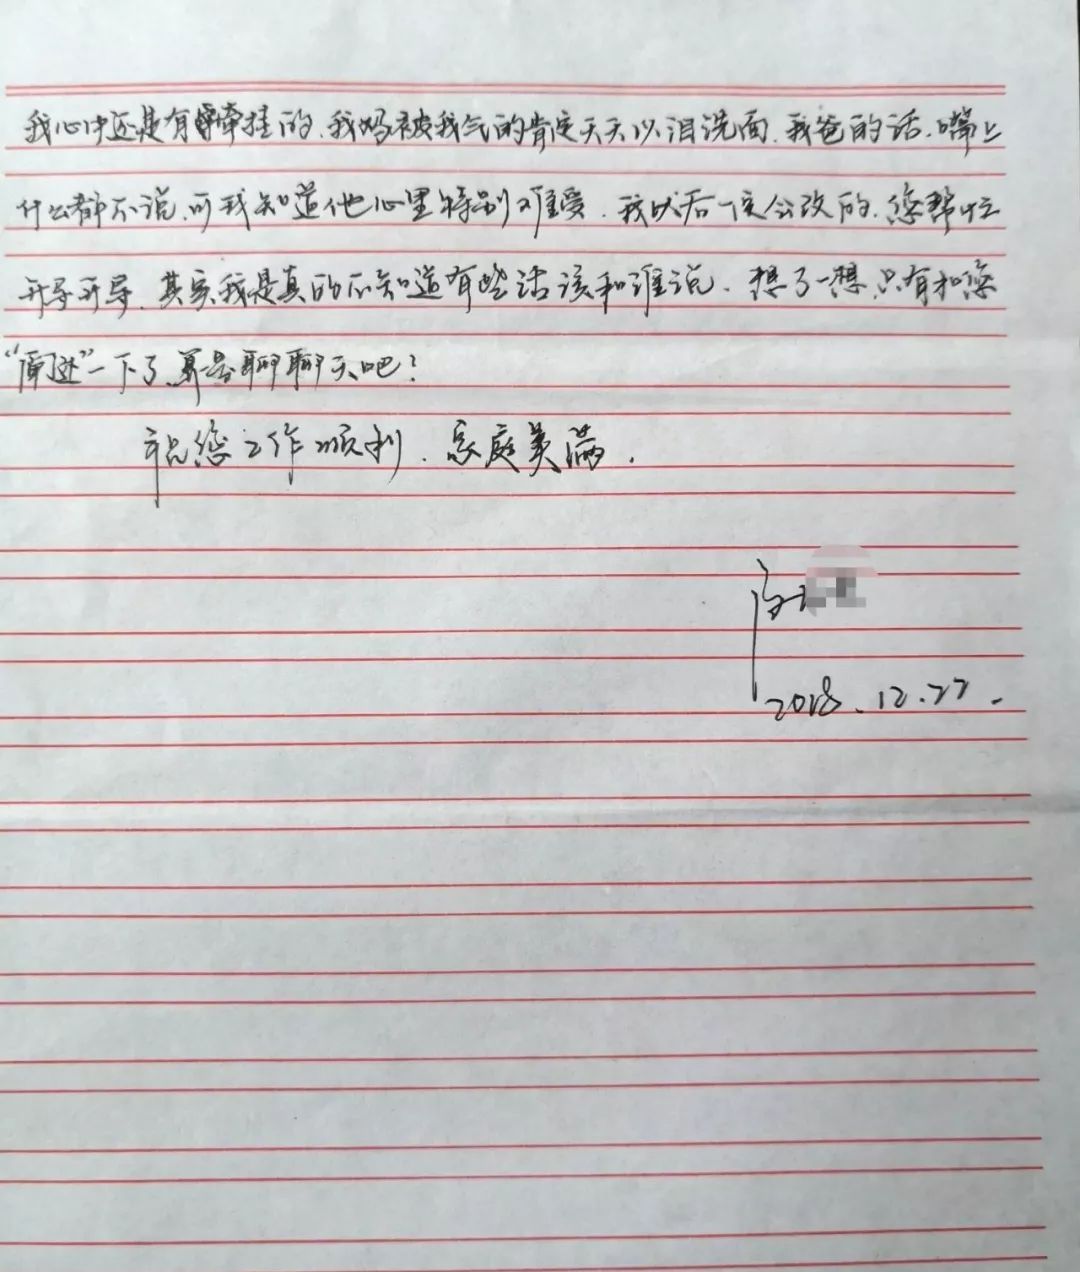 我心中还是有牵挂的.我妈被我气的肯定天天以泪洗面.我爸的话.嘴上
什么都不说.可我知道他心里特别难受.我以后一定会改的.您帮忙
开导开导.其实我是真的不知道有些话该和谁说.想了一想.只有和您
“阐述”一下了.算是聊聊天吧?
祝您工作顺利.家庭美满.
2018.12.27.